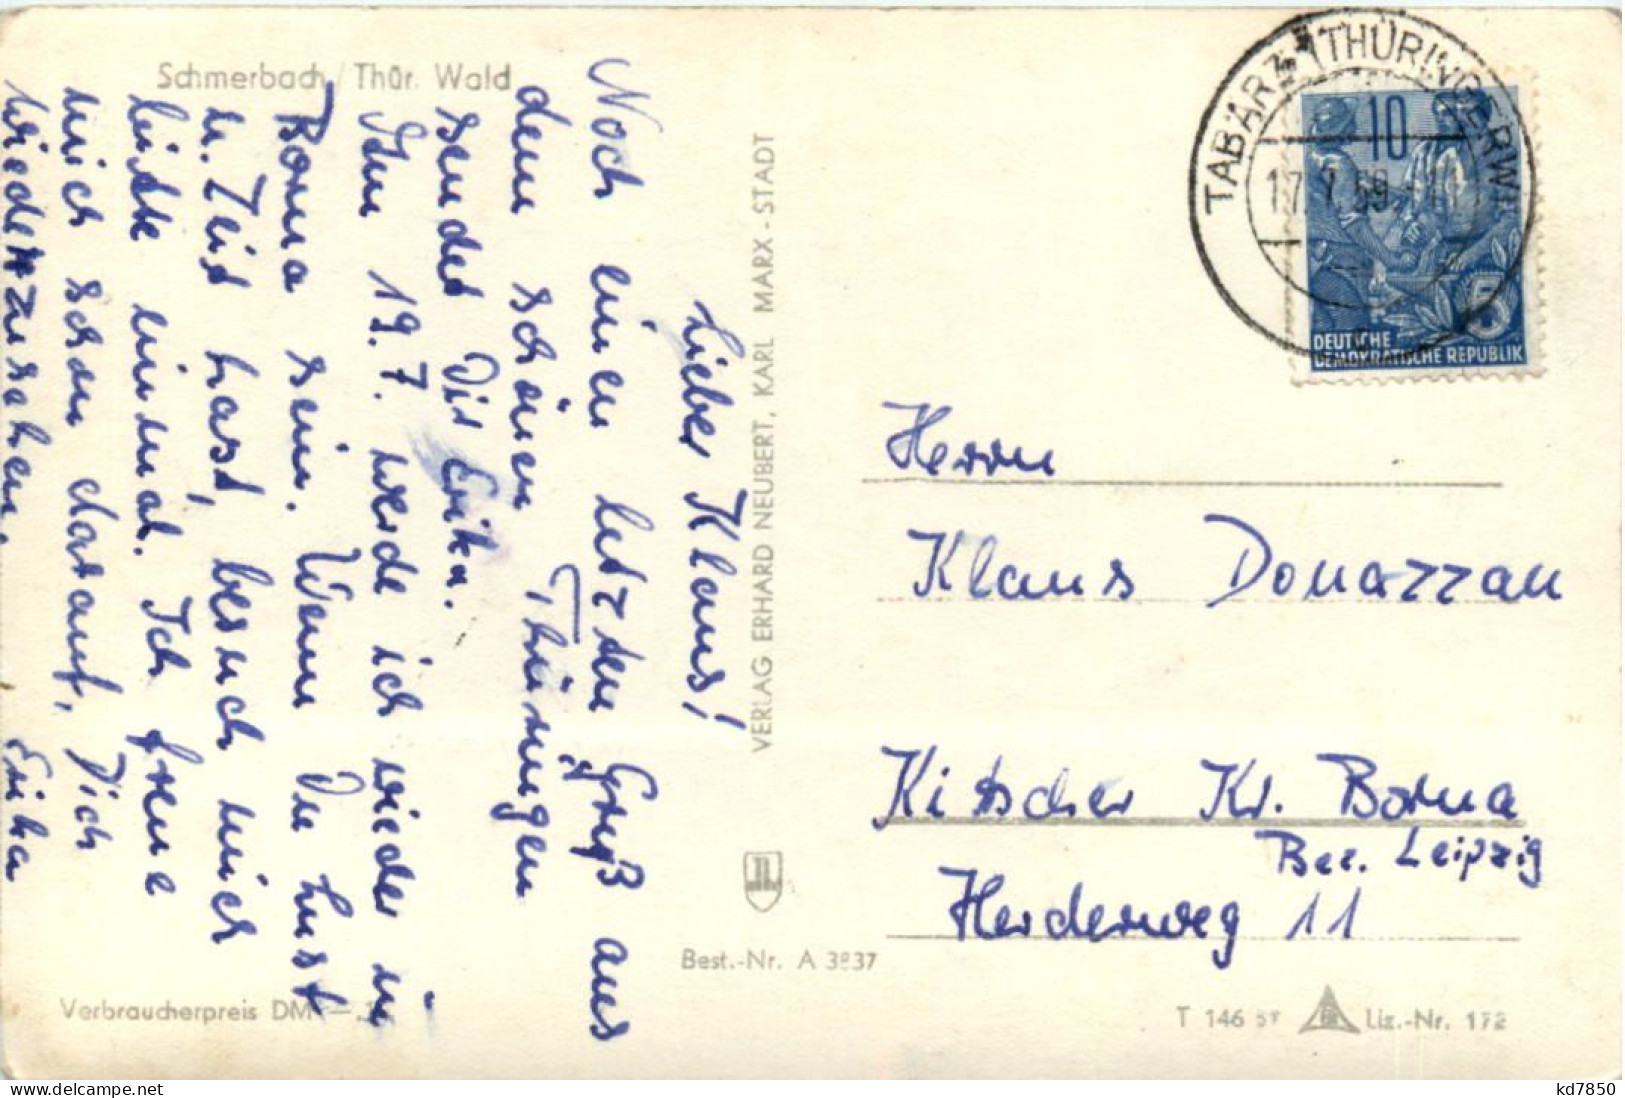 Schmerbach / Thür. Wald
Lieber Klaus!
Noch einen letzten Gruß aus
dem schönen Thüringen
sendet Dir Erika.
Am 19.7. werde ich wieder in
Borna sein. Wenn Du Lust
u. Zeit hast, besuch mich
bitte einmal. Ich freue
mich schon darauf, Dich
wiederzusehen. Erika
VERLAG ERHARD NEUBERT, KARL MARX-STADT
Best.-Nr. A 3837
Verbraucherpreis DM
TABARZ (THÜRINGERW)
10
5
DEUTSCHE
DEMOKRATISCHE REPUBLIK
Herrn
Klaus Donazzan
Kitzscher Kr. Borna
Bez. Leipzig
Herderweg 11
T 146 Liz.-Nr. 172
delcampe.net
kd7850